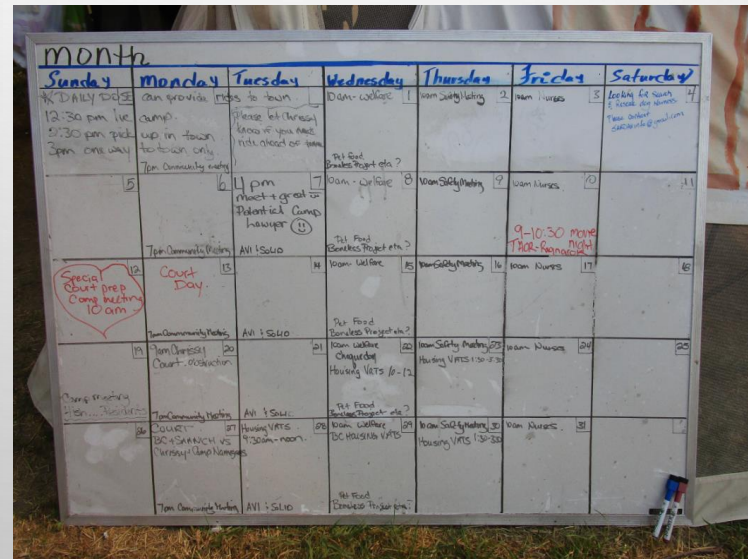 month
Sunday Monday Tuesday Wednesday Thursday Friday Saturday
DAILY can provide rides to town.
12:30 pm camp.
pick up in town
3pm one way to town only
7pm Community meeting
Please let Chrissy
know if you need
ride ahead of
10am - welfare 1
Pet Food
Boneless Project eta?
10am Safety Meeting 2
10am Nurses 3
4
Looking for
Please contact
5
6
7pm Community Meeting
4pm 7
meet + greet
Potential Camp
Lawyer
AVI + SOLID
10am - welfare 8
Pet Food
Boneless Project eta?
10am Safety Meeting 9
10am Nurses 10
9-10:30 movie
night
THOR-Ragnarok
11
12
Special
Court prep
Camp meeting
10 am
Court 13
Day.
7pm Community Meeting
14
AVI + SOLID
10am Welfare 15
Pet Food
Boneless Project eta?
10am Safety Meeting 16
10am Nurses 17
18
19
Camp meeting
Residents
9am Chrissy 20
Court. obstruction
7pm Community Meeting
21
AVI + SOLID
10am Welfare 22
Housing VATS 10-12
Pet Food
Boneless Project eta?
10am Safety Meeting 23
Housing VATS 1:30-3:30
10am Nurses 24
25
26
COURT 27
BC + SAANICH vs
Chrissy + Camp Namegans
7pm Community Meeting
Housing VATS 28
9:30am - noon.
AVI + SOLID
10am Welfare 29
BC HOUSING VATS
Pet Food
Boneless Project eta?
10am Safety Meeting 30
Housing VATS 1:30-3:30
10am Nurses 31